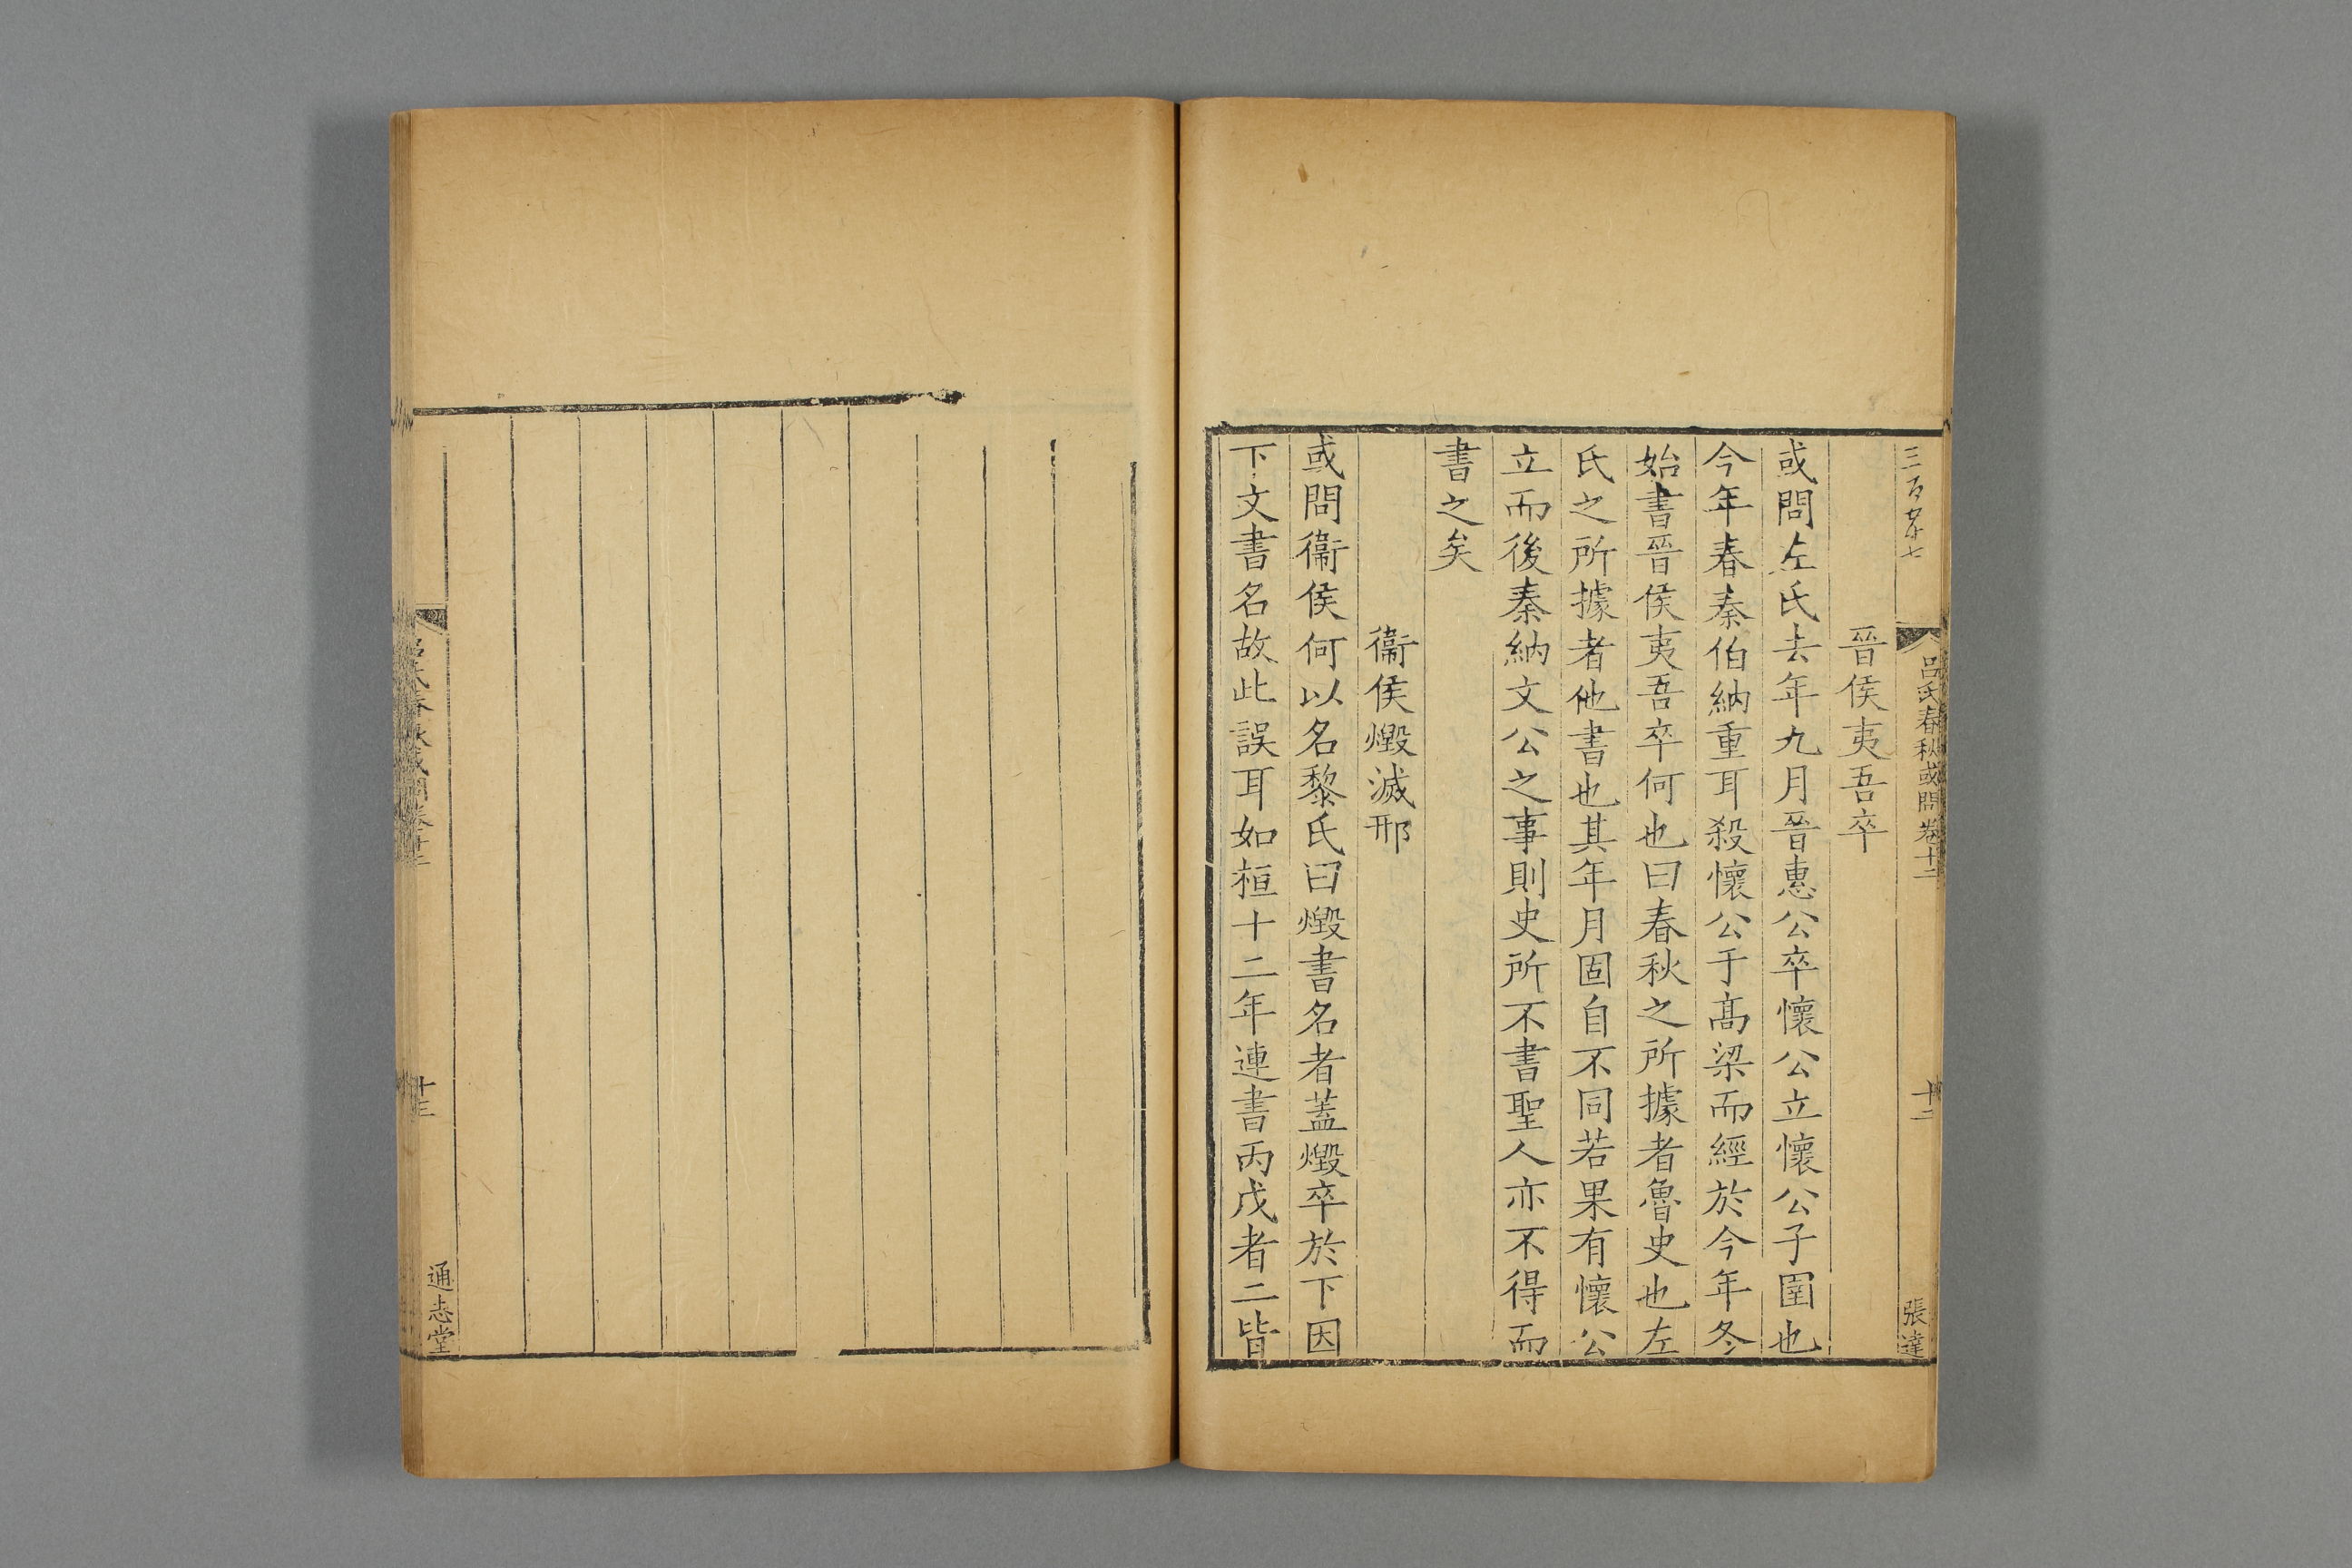 吕氏春秋或問卷十二
十二
張達
晉侯夷吾卒
或問左氏去年九月晉惠公卒懷公立懷公子圉也
今年春秦伯納重耳殺懷公于髙梁而經於今年冬
始書晉侯夷吾卒何也曰春秋之所據者魯史也左
氏之所據者他書也其年月固自不同若果有懷公
立而後秦納文公之事則史所不書聖人亦不得而
書之矣
衞侯燬滅邢
或問衞侯何以名黎氏曰燬書名者葢燬卒於下因
下文書名故此誤耳如桓十二年連書丙戌者二皆
吕氏春秋或問卷十二
十三
通志堂